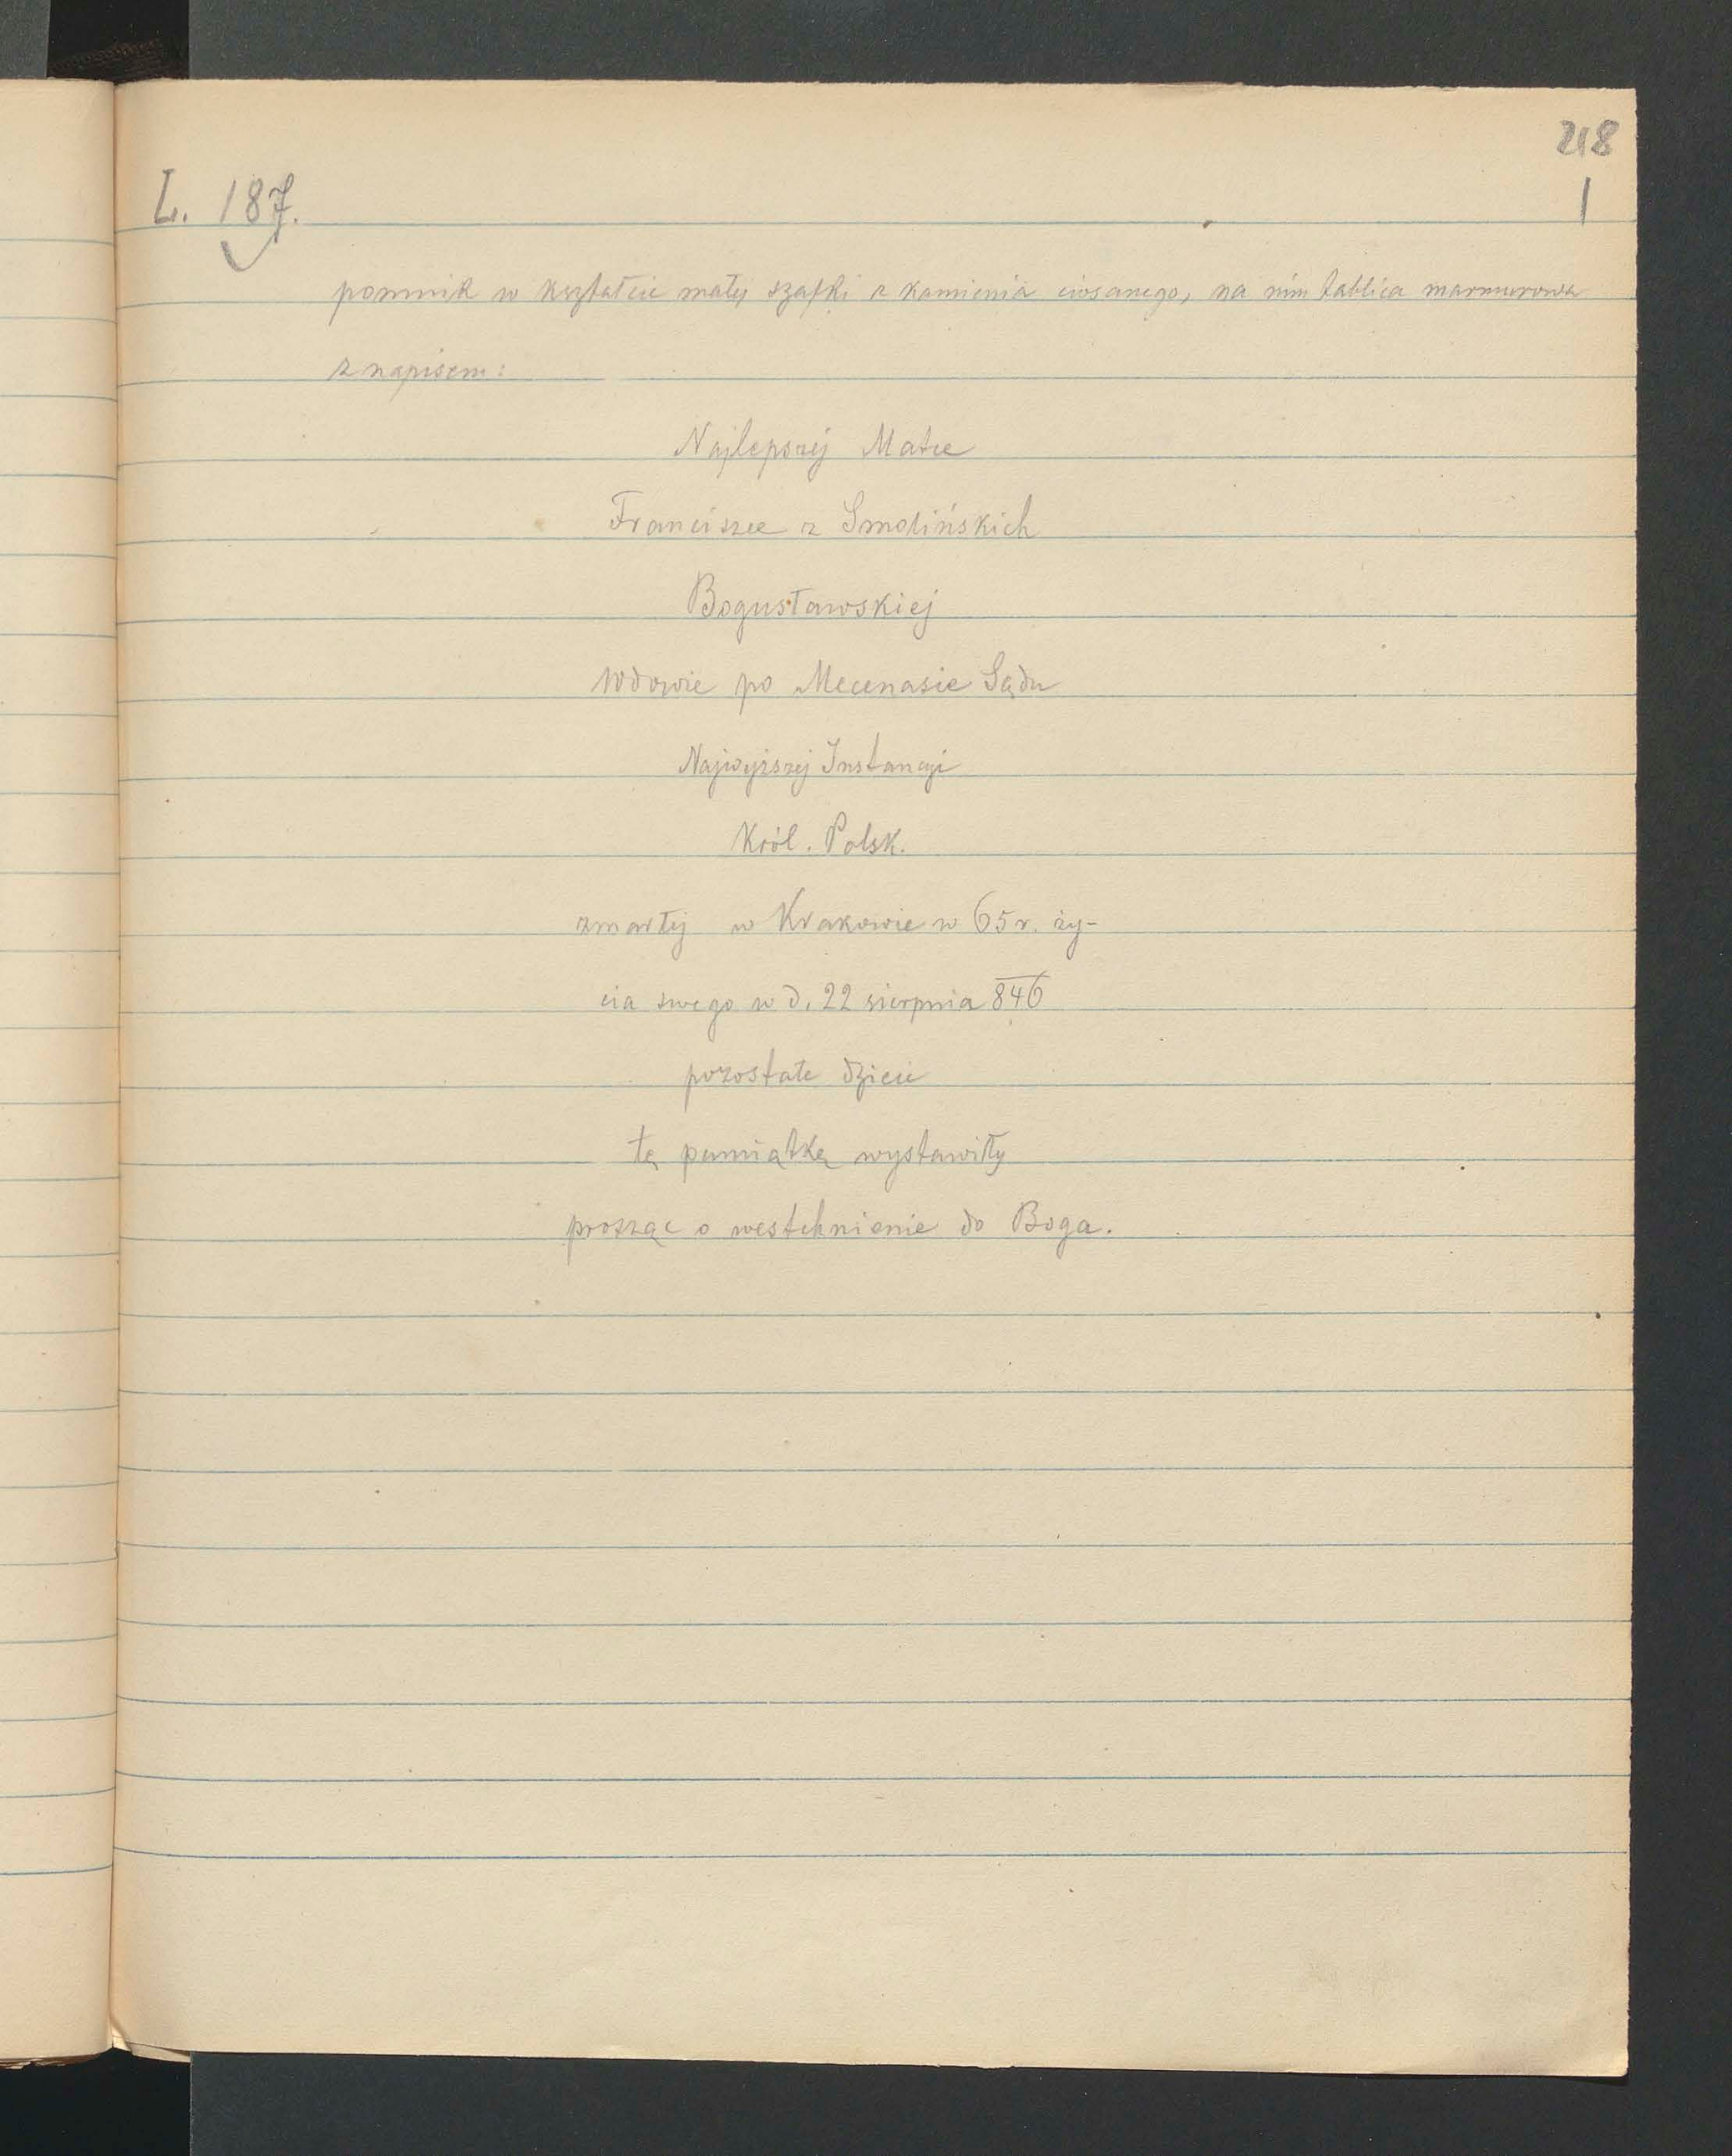 218
1
L. 187.
pomnik w kształcie małej szafki z kamienia ciosanego, na nim tablica marmurowa
z napisem:
Najlepszéj Matce
Franciszce z Smolińskich
Bogusławskiej
Wdowie po Mecenasie Sądu
Najwyższéj Instancyi
Król. Polsk.
zmarłéj w Krakowie w 65 r. ży-
cia swego w d. 22 sierpnia 846
pozostałe dzieci
tę pamiątkę wystawiły
prosząc o westchnienie do Boga.